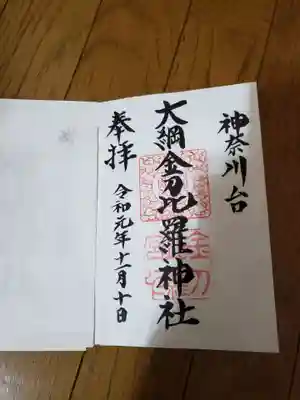 神奈川台
大綱金刀比羅神社
奉拝
令和元年十一月十日